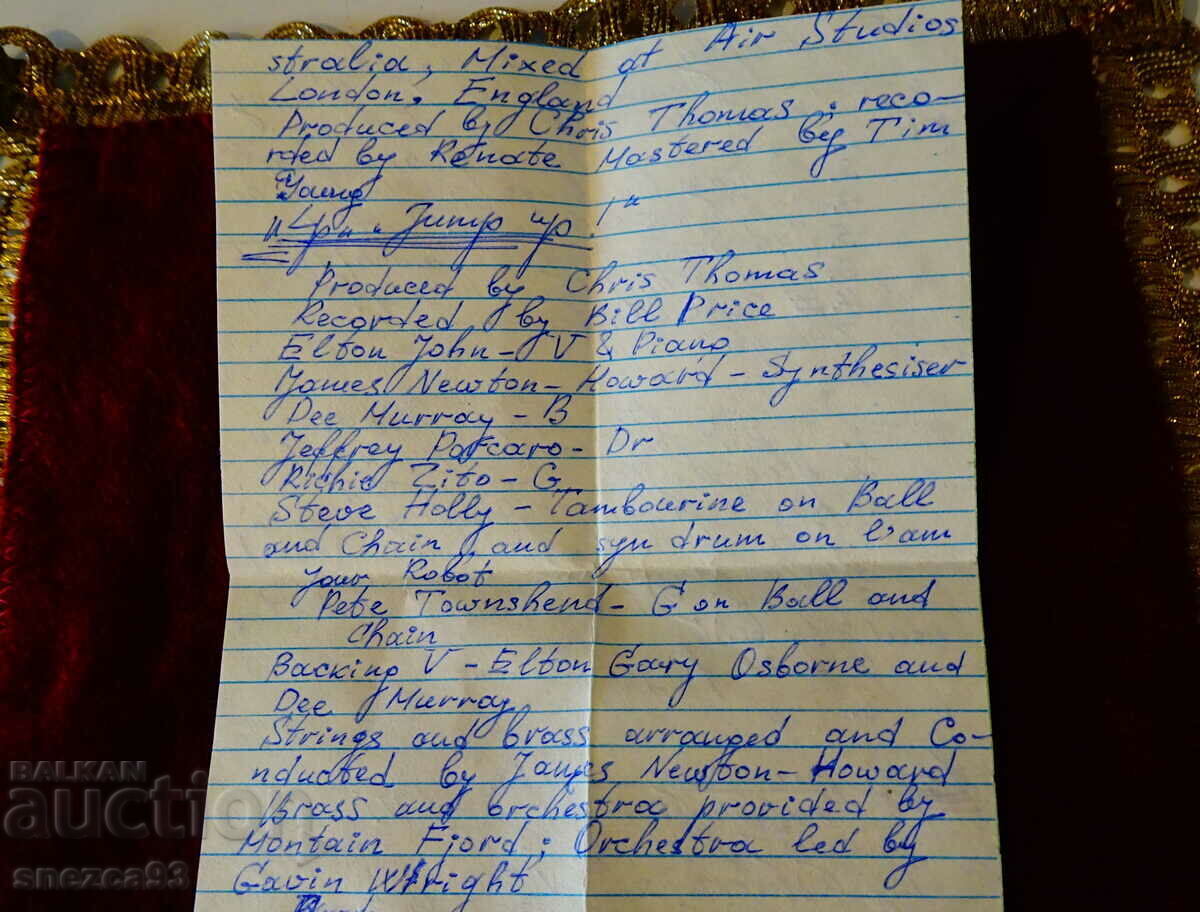 stralia, Mixed at Air Studios
London, England
Produced by Chris Thomas; reco-
rded by Renate Mastered by Tim
Young
"Lp" "Jump up!"
Produced by Chris Thomas
Recorded by Bill Price
Elton John - V & Piano
James Newton-Howard - Synthesiser
Dee Murray - B
Jeffrey Porcaro - Dr
Richie Zito - G
Steve Holly - Tambourine on Ball
and Chain and syn drum on I am
your Robot
Pete Townshend - G on Ball and
Chain
Backing V - Elton Gary Osborne and
Dee Murray
Strings and brass arranged and Co-
nducted by James Newton-Howard
Brass and orchestra provided by
Montain Fjord; Orchestra led by
Gavin Wright
BALKAN
auction
snezca93